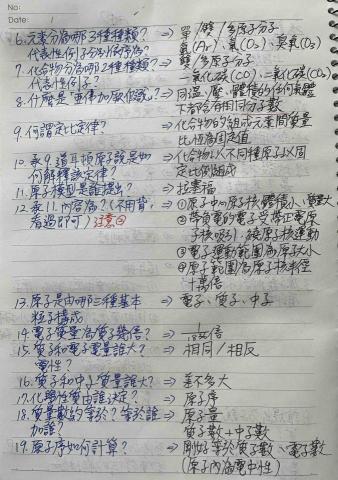 No:
Date:
6.元素分為哪3種種類? ⇒ 單/雙/多原子分子
代表性例子分別有何為? 氬(Ar)、氧(O₂)、臭氧(O₃)
7.化合物分為哪2種種類? ⇒ 雙/多原子分子
代表性例子? 一氧化碳(CO)、二氧化碳(CO₂)
8.什麼是"亞佛加厥假說"? ⇒ 同溫、壓、體積的任何氣體
下都含有相同分子數
9.何謂定比定律? ⇒ 化合物的組成元素間質量
比值為固定值
10.承9.道耳頓原子說是如 ⇒ 化合物以不同種原子以固
何解釋該定律? 定比例組成
11.原子模型是誰提出? ⇒ 拉塞福
12.承11.內容為?(不用背, ⇒ ①原子中原子核體積小、質量大
看過即可) 注意② ②帶負電的電子受帶正電原
子核吸引,繞原子核運動
③電子運動範圍為原子大小
④原子範圍為原子核半徑
十萬倍
13.原子是由哪三種基本 ⇒ 電子、質子、中子
粒子構成
14.電子質量為質子幾倍? ⇒ 1/1836倍
15.質子和電子電量誰大? ⇒ 相同/相反
電性?
16.質子和中子質量誰大? ⇒ 差不多大
17.化學性質由誰決定? ⇒ 原子序
18.質量數約等於?等於誰 ⇒ 原子量
加誰? 質子數+中子數
19.原子序如何計算? ⇒ 剛好等於質子數、電子數
(原子內為電中性)